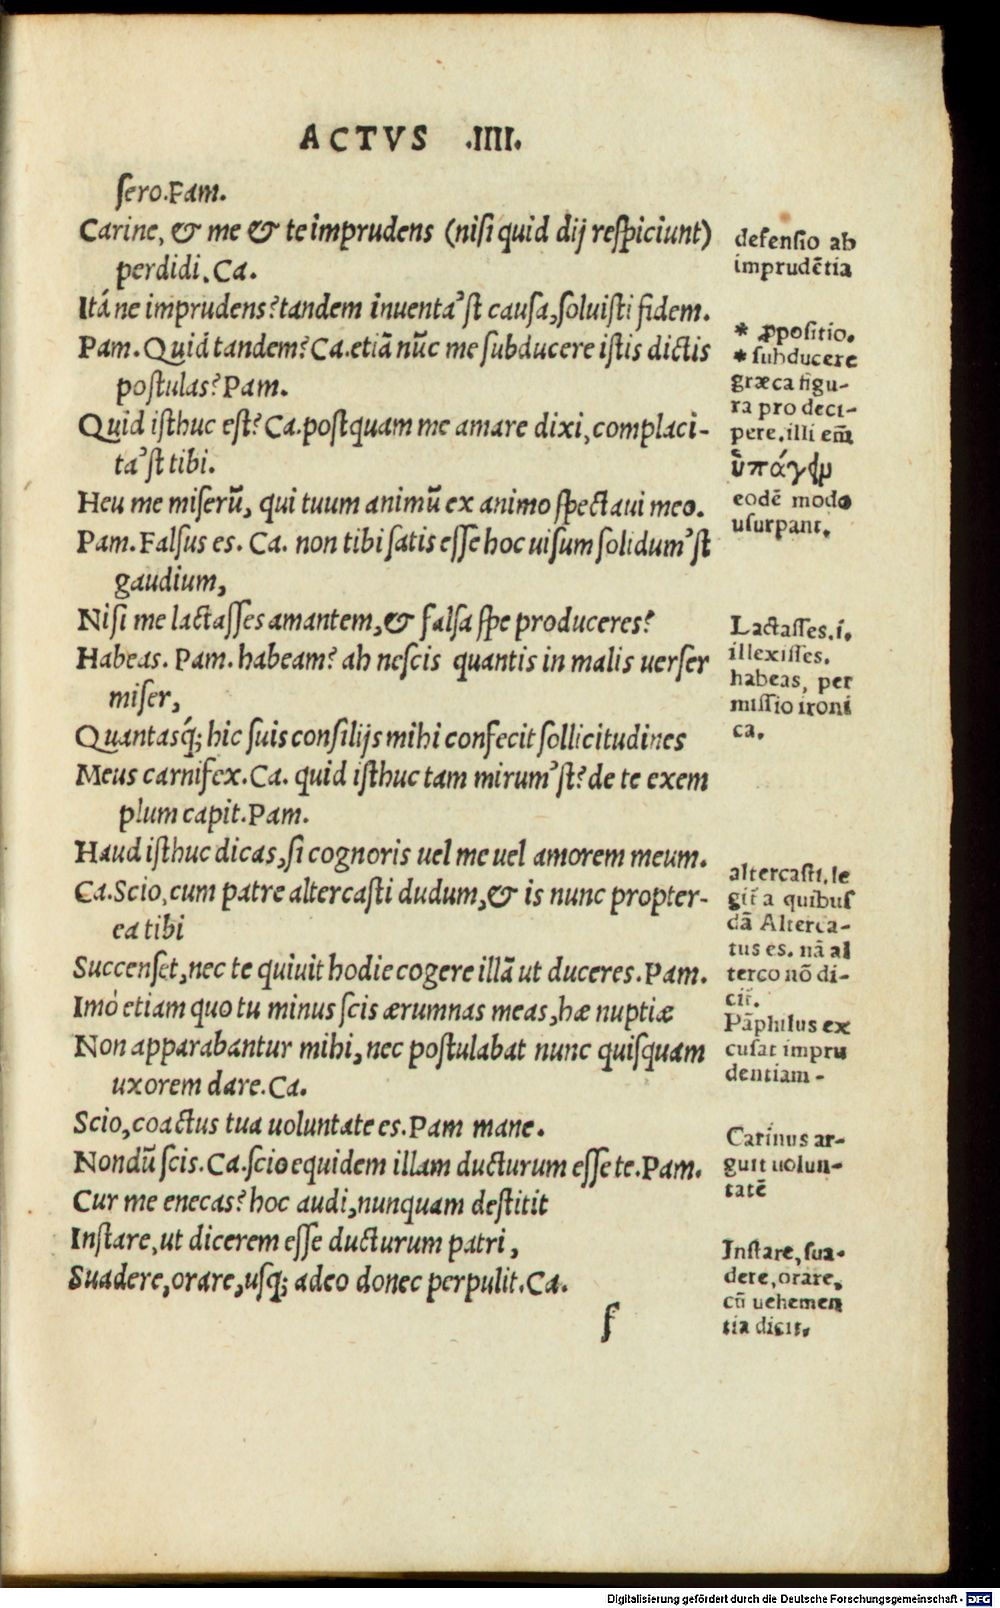 ACTVS .IIII.
ſero.Pam.
Carine, & me & te imprudens (niſi quid dij reſpiciunt)
perdidi.Ca.
Itá ne imprudens? tandem inuenta'ſt cauſa,ſoluiſti fidem.
Pam.Quid tandem? Ca.etiã nũc me ſubducere iſtis dictis
poſtulas? Pam.
Quid iſthuc eſt? Ca.poſtquam me amare dixi,complaci-
ta'ſt tibi.
Heu me miſerũ, qui tuum animũ ex animo ſpectaui meo.
Pam.Falſus es. Ca. non tibi ſatis eſſe hoc uiſum ſolidum'ſt
gaudium,
Niſi me lactaſſes amantem,& falſa ſpe produceres?
Habeas. Pam.habeam? ah neſcis quantis in malis uerſer
miſer,
Quantasq́; hic ſuis conſilijs mihi confecit ſollicitudines
Meus carnifex.Ca. quid iſthuc tam mirum'ſt? de te exem
plum capit.Pam.
Haud iſthuc dicas,ſi cognoris uel me uel amorem meum.
Ca.Scio,cum patre altercaſti dudum,& is nunc propter-
ea tibi
Succenſet,nec te quiuit hodie cogere illã ut duceres.Pam.
Imò etiam quo tu minus ſcis ærumnas meas,hæ nuptiæ
Non apparabantur mihi,nec poſtulabat nunc quiſquam
uxorem dare.Ca.
Scio,coactus tua uoluntate es.Pam mane.
Nondũ ſcis.Ca.ſcio equidem illam ducturum eſſe te.Pam.
Cur me enecas? hoc audi,nunquam deſtitit
Inſtare,ut dicerem eſſe ducturum patri,
Suadere,orare,uſq; adeo donec perpulit.Ca.
f
defenſio ab
imprudẽtia
* ꝓpoſitio.
* ſubducere
græca figu-
ra pro deci-
pere.illi em̃
ὑπάγειν
eodẽ modo
uſurpant.
Lactaſſes.i.
illexiſſes.
habeas, per
miſſio ironi
ca.
altercaſti.le
git̃ a quibuſ
dã Alterca-
tus es. nã al
terco nõ di-
cit̃.
Pãphilus ex
cuſat impru
dentiam-
Carinus ar-
guit uolun-
tatẽ
Inſtare,ſua-
dere,orare,
cũ uehemen
tia dicit.
Digitalisierung gefördert durch die Deutsche Forschungsgemeinschaft - DFG